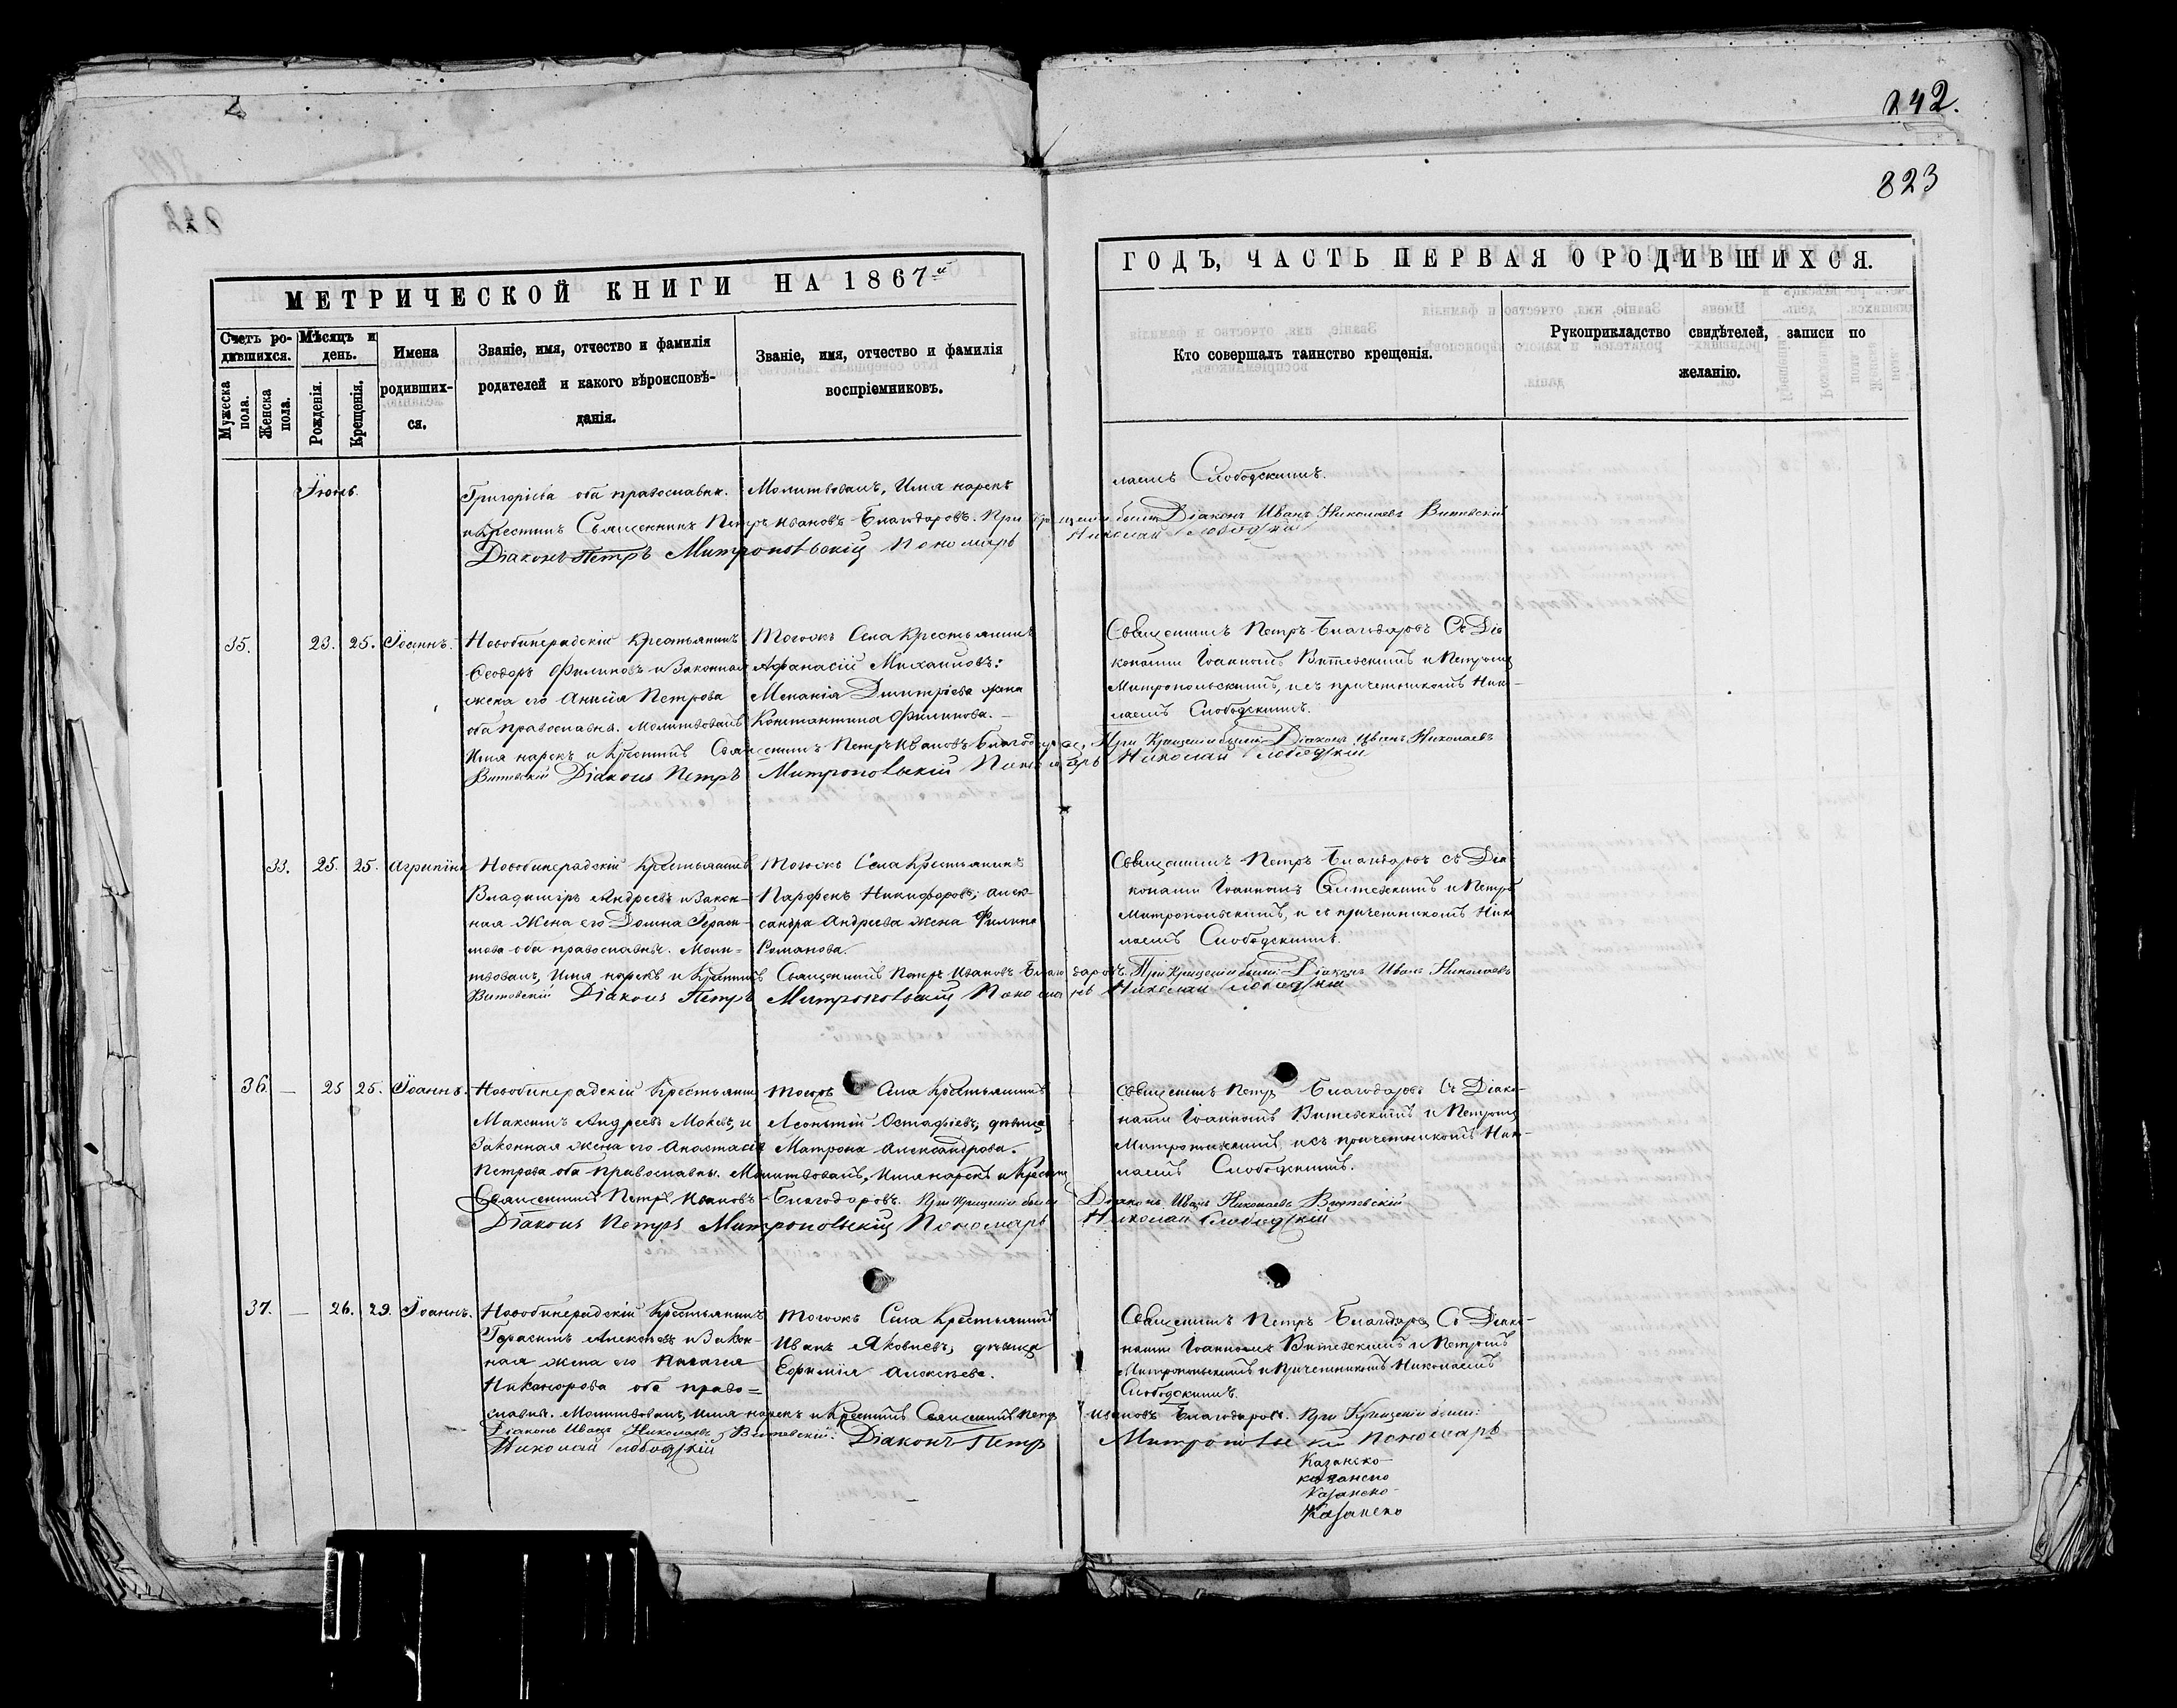 242.
823
МЕТРИЧЕСКОЙ КНИГИ НА 1867й
ГОДЪ, ЧАСТЬ ПЕРВАЯ О РОДИВШИХСЯ.
Счетъ ро-
дившихся.
Мужеска пола.
Женска пола.
Мѣсяцъ и
день.
Рожденія.
Крещенія.
Имена
родивших-
ся.
Званіе, имя, отчество и фамилія
родителей и какого вѣроисповѣ-
данія.
Званіе, имя, отчество и фамилія
воспріемниковъ.
Кто совершалъ таинство крещенія.
Рукоприкладство свидѣтелей, записи по
желанію.
Іюнь
Григоріева оба православн. Молитвовалъ, Имя нарекъ
лаемъ Слободскимъ.
и крестилъ Священникъ Петръ Ивановъ Благодаровъ. При крещеніи были Діаконъ Иванъ Николаевъ Витевскій
Діаконъ Петръ Митропольскій Пономарь Николай Слободскій
35. 23. 25. Іоаннъ.
Новобинерадскій Крестьянинъ
Ѳеодоръ Филиповъ и Законная
жена его Анисія Петрова
оба православн. Молитвовалъ
Тогожъ Села Крестьянинъ
Афанасій Михаиловъ:
Меланія Димитріева жена
Константина Филипова.
Священникъ Петръ Благодаровъ Съ Діа
конами Іоанномъ Витевскимъ и Петромъ
Митропольскимъ, и съ причетникомъ Нико-
лаемъ Слободскимъ.
Имя нарекъ и Крестилъ Священникъ Петръ Ивановъ Благодаровъ. При Крещеніи были: Діаконъ Иванъ Николаевъ
Витевскій Діаконъ Петръ Митропольскій Пономарь Николай Слободскій
33. 25. 25. Агрипина
Новобинерадскій Крестьянинъ
Владиміръ Андреевъ и Закон-
ная Жена его Домна Гераси-
мова оба православн. Моли-
Тогожъ Села Крестьянинъ
Парфенъ Никифоровъ, Алек-
сандра Андреева жена Филипа
Романова.
Священникъ Петръ Благодаровъ съ Діа
конами Іоанномъ Витевскимъ и Петромъ
Митропольскимъ, и съ причетникомъ Нико
лаемъ Слободскимъ.
твовалъ, Имя нарекъ и Крестилъ Священникъ Петръ Ивановъ Благодаровъ. При Крещеніи были: Діаконъ Иванъ Николаевъ
Витевскій Діаконъ Петръ Митропольскій Пономарь Николай Слободскій
36. — 25 25. Іоаннъ.
Новобинерадскій Крестьянинъ
Максимъ Андреевъ и
Законная жена его Анастасія
Тогожъ Села Крестьянинъ
Леонтій Остафіевъ, дѣвица
Матрона Александрова.
Священникъ Петръ Благодаровъ Съ Діако-
нами Іоанномъ Витевскимъ и Петромъ
Митропольскимъ, и съ причетникомъ Ник-
лаемъ Слободскимъ.
Петрова оба православны. Молитвовалъ, Имя нарекъ и Крестилъ
Священникъ Петръ Ивановъ Благодаровъ. При Крещеніи были Діаконъ Иванъ Николаевъ Витевскій
Діаконъ Петръ Митропольскій Пономарь Николай Слободскій
37. — 26. 29. Іоаннъ.
Новобинерадскій Крестьянинъ
Герасимъ Алексѣевъ и Закон-
ная жена его Пелагея
Никанорова оба право=
Тогожъ Села Крестьянинъ
Иванъ Яковлевъ, дѣвица
Ефимія Алексѣева.
Священникъ Петръ Благодаровъ Съ Діако-
нами Іоанномъ Витевскимъ и Петромъ
Митропольскимъ и Причетникомъ Николаемъ
Слободскимъ.
славн. Молитвовалъ, имя нарекъ и Крестилъ Священникъ Петръ Ивановъ Благодаровъ. При Крещеніи были:
Діаконъ Иванъ Николаевъ Витевскій. Діаконъ Петръ Митропольскій Пономарь
Николай Слободскій
Казанско-
казанско
Казанско-
Казанско